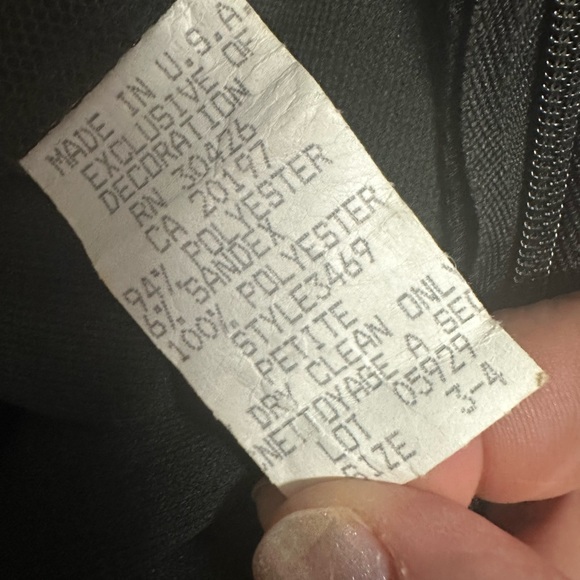 MADE IN U.S.A.
EXCLUSIVE OF
DECORATION
RN 30426
CA 20197
94% POLYESTER
6% SANDEX
100% POLYESTER
STYLE3469
PETITE
DRY CLEAN ONLY
NETTOYAGE A SEC
LOT 05929
SIZE 3-4